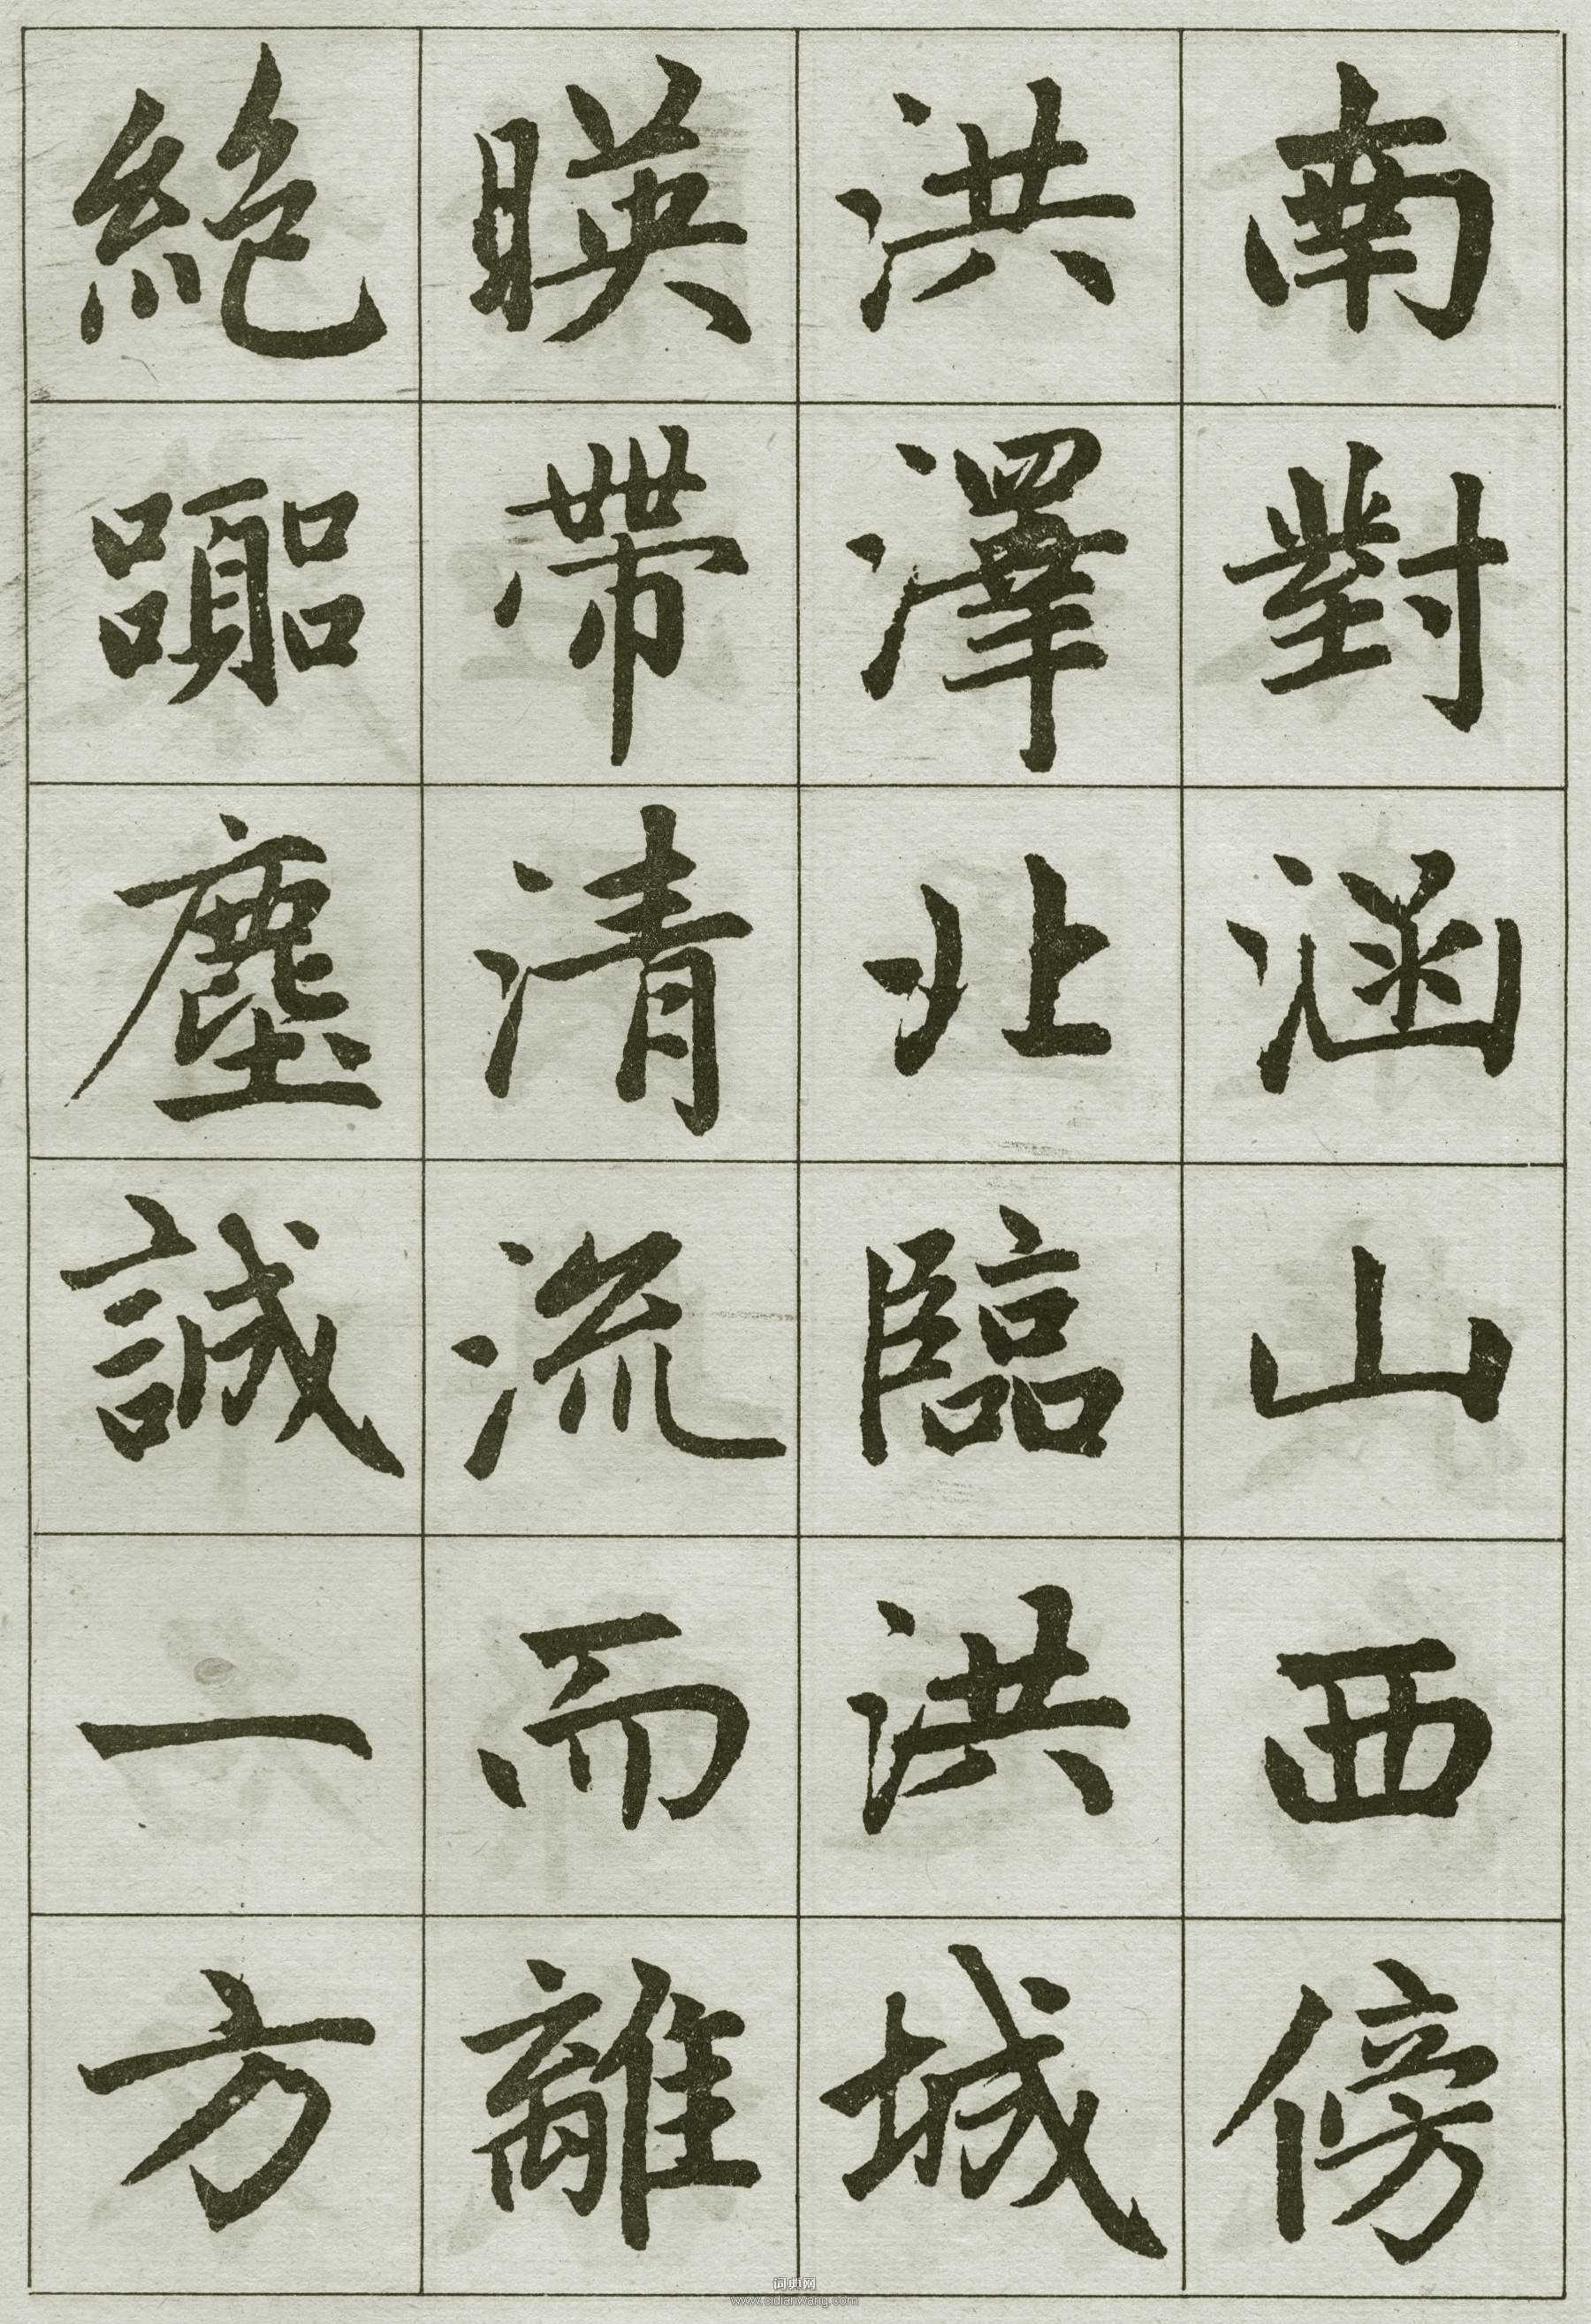 南對涵山西傍
洪澤北臨洪城
暎帶清流而離
絶囂塵誠一方
词典网
www.cidianwang.com